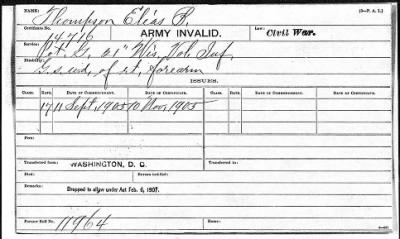 (3—P. A. I.)
Thompson Elias P.
Certificate No. ARMY INVALID. Law: Civil War.
14716
Service:
Pvt. G. 21" Wis. Vol. Inf.
Disability:
G. s. wd. of rt. forearm
ISSUES.
CLASS. DATE OF COMMENCEMENT. DATE OF CERTIFICATE. CLASS. DATE OF COMMENCEMENT. DATE OF CERTIFICATE.
17 11 Sept., 1905 10 Nov., 1905
Fees:
Transferred from WASHINGTON, D. C.
Died: Person notified:
Remarks: Dropped to allow under Act Feb. 6, 1907.
Former Roll No. 11964 Home: